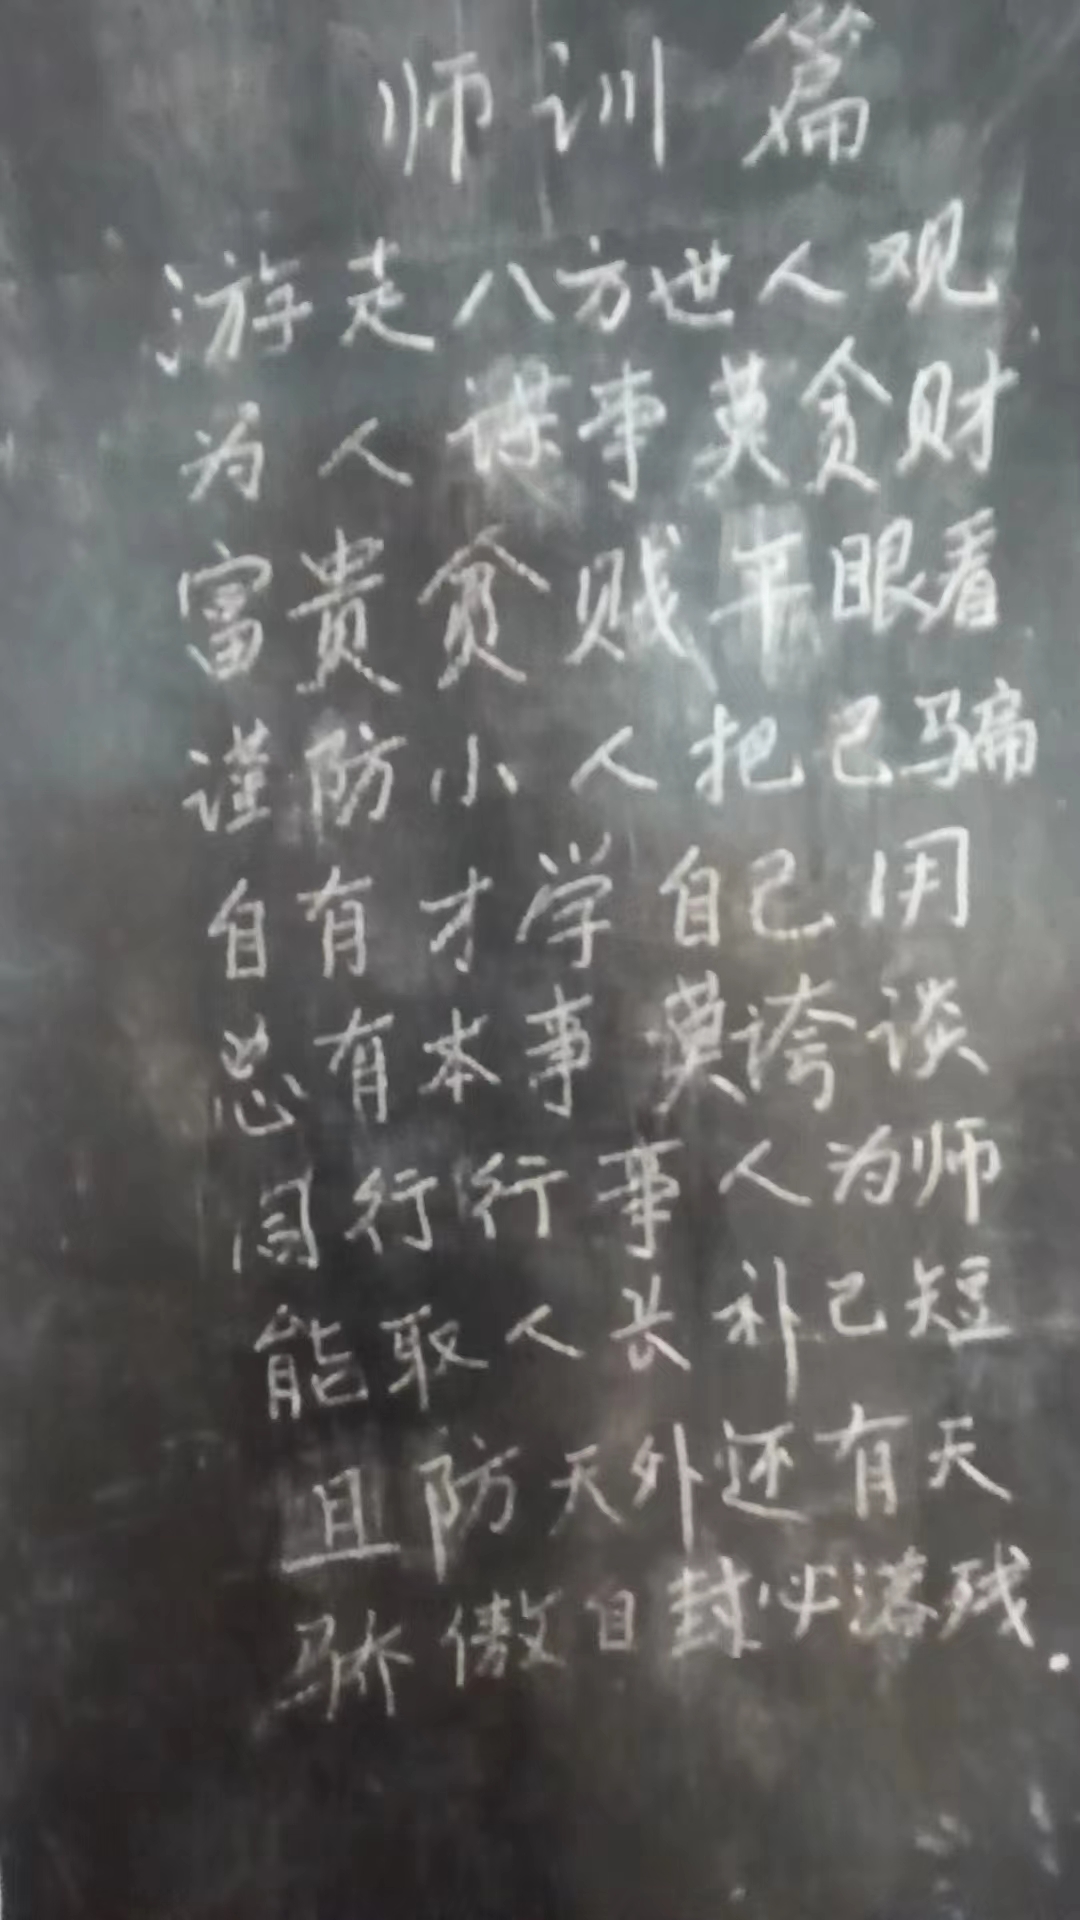 师训篇
游走八方世人观
为人谋事莫贪财
富贵贫贱平眼看
谨防小人把己骗
自有才学自己用
总有本事莫诿谈
同行行事人为师
能取人长补己短
且防天外还有天
骄傲自封必落残